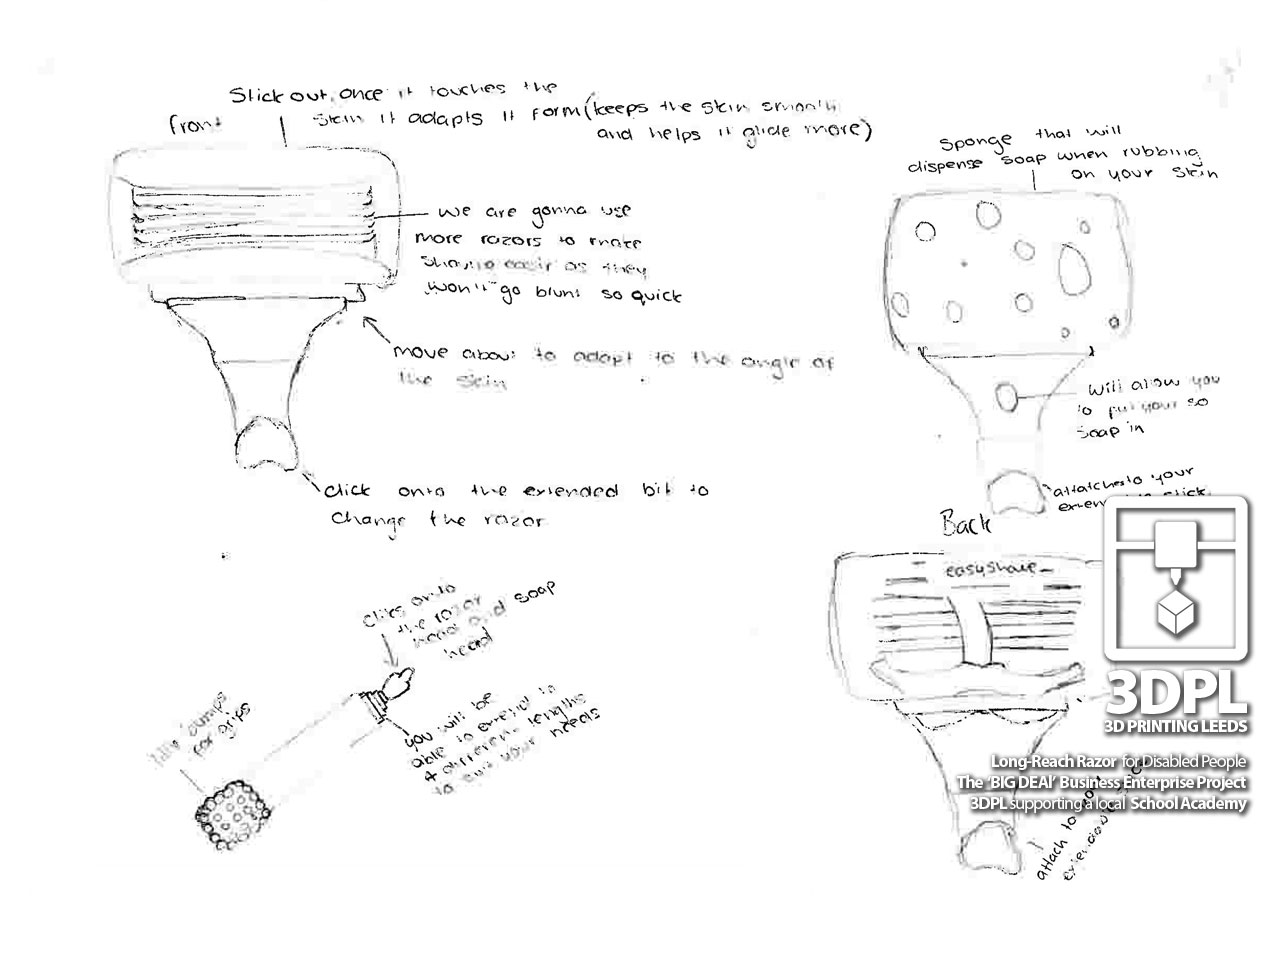 Slick out, once it touches the
skin it adapts it form (keeps the skin smooth
and helps it glide more)
front
we are gonna use
more razors to make
shaving easir as they
won't go blunt so quick
move about to adapt to the angle of
the skin
click onto the extended bit to
change the razor
sponge that will
dispense soap when rubbing
on your skin
will allow you
to put your so
soap in
attatches to your
stick
Back
easyshave
clikes onto
the razor
head and soap
head
bumps
for grips
you will be
able to extend to
4 different lengths
to suit your needs
attach to your
3DPL
3D PRINTING LEEDS
Long-Reach Razor for Disabled People
The 'BIG DEAl' Business Enterprise Project
3DPL supporting a local School Academy